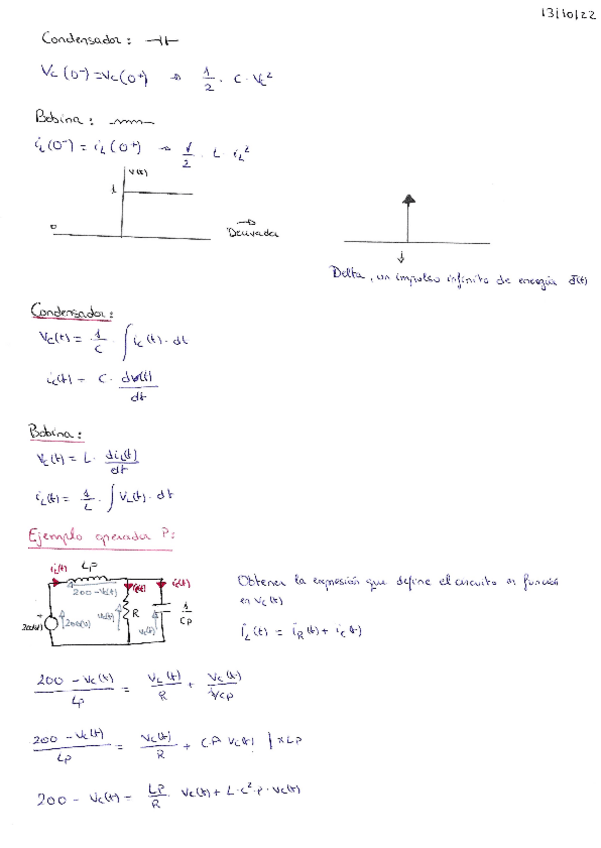 13/10/22
Condensador:
Vc(0⁻)=Vc(0⁺) → 1/2 · C · Vc²
Bobina:
iL(0⁻) = iL(0⁺) → 1/2 · L · iL²
V(t)
1
0
Derivada
Delta, un impulso infinito de energía δ(t)
Condensador:
Vc(t) = 1/C · ∫ ic(t) · dt
ic(t) = C · dv(t)/dt
Bobina:
VL(t) = L · diL(t)/dt
iL(t) = 1/L · ∫ VL(t) · dt
Ejemplo operador P:
iL(t) LP
200-Vc(t) iR(t) ic(t)
R 1/CP
Vc(t) Vc(t)
Obtener la expresión que define el circuito en función
en Vc(t)
iL(t) = iR(t) + ic(t)
200 - Vc(t)/LP = Vc(t)/R + Vc(t)/1/CP
200 - Vc(t)/LP = Vc(t)/R + C·P Vc(t) | × LP
200 - Vc(t) = LP/R Vc(t) + L·C²·P·Vc(t)